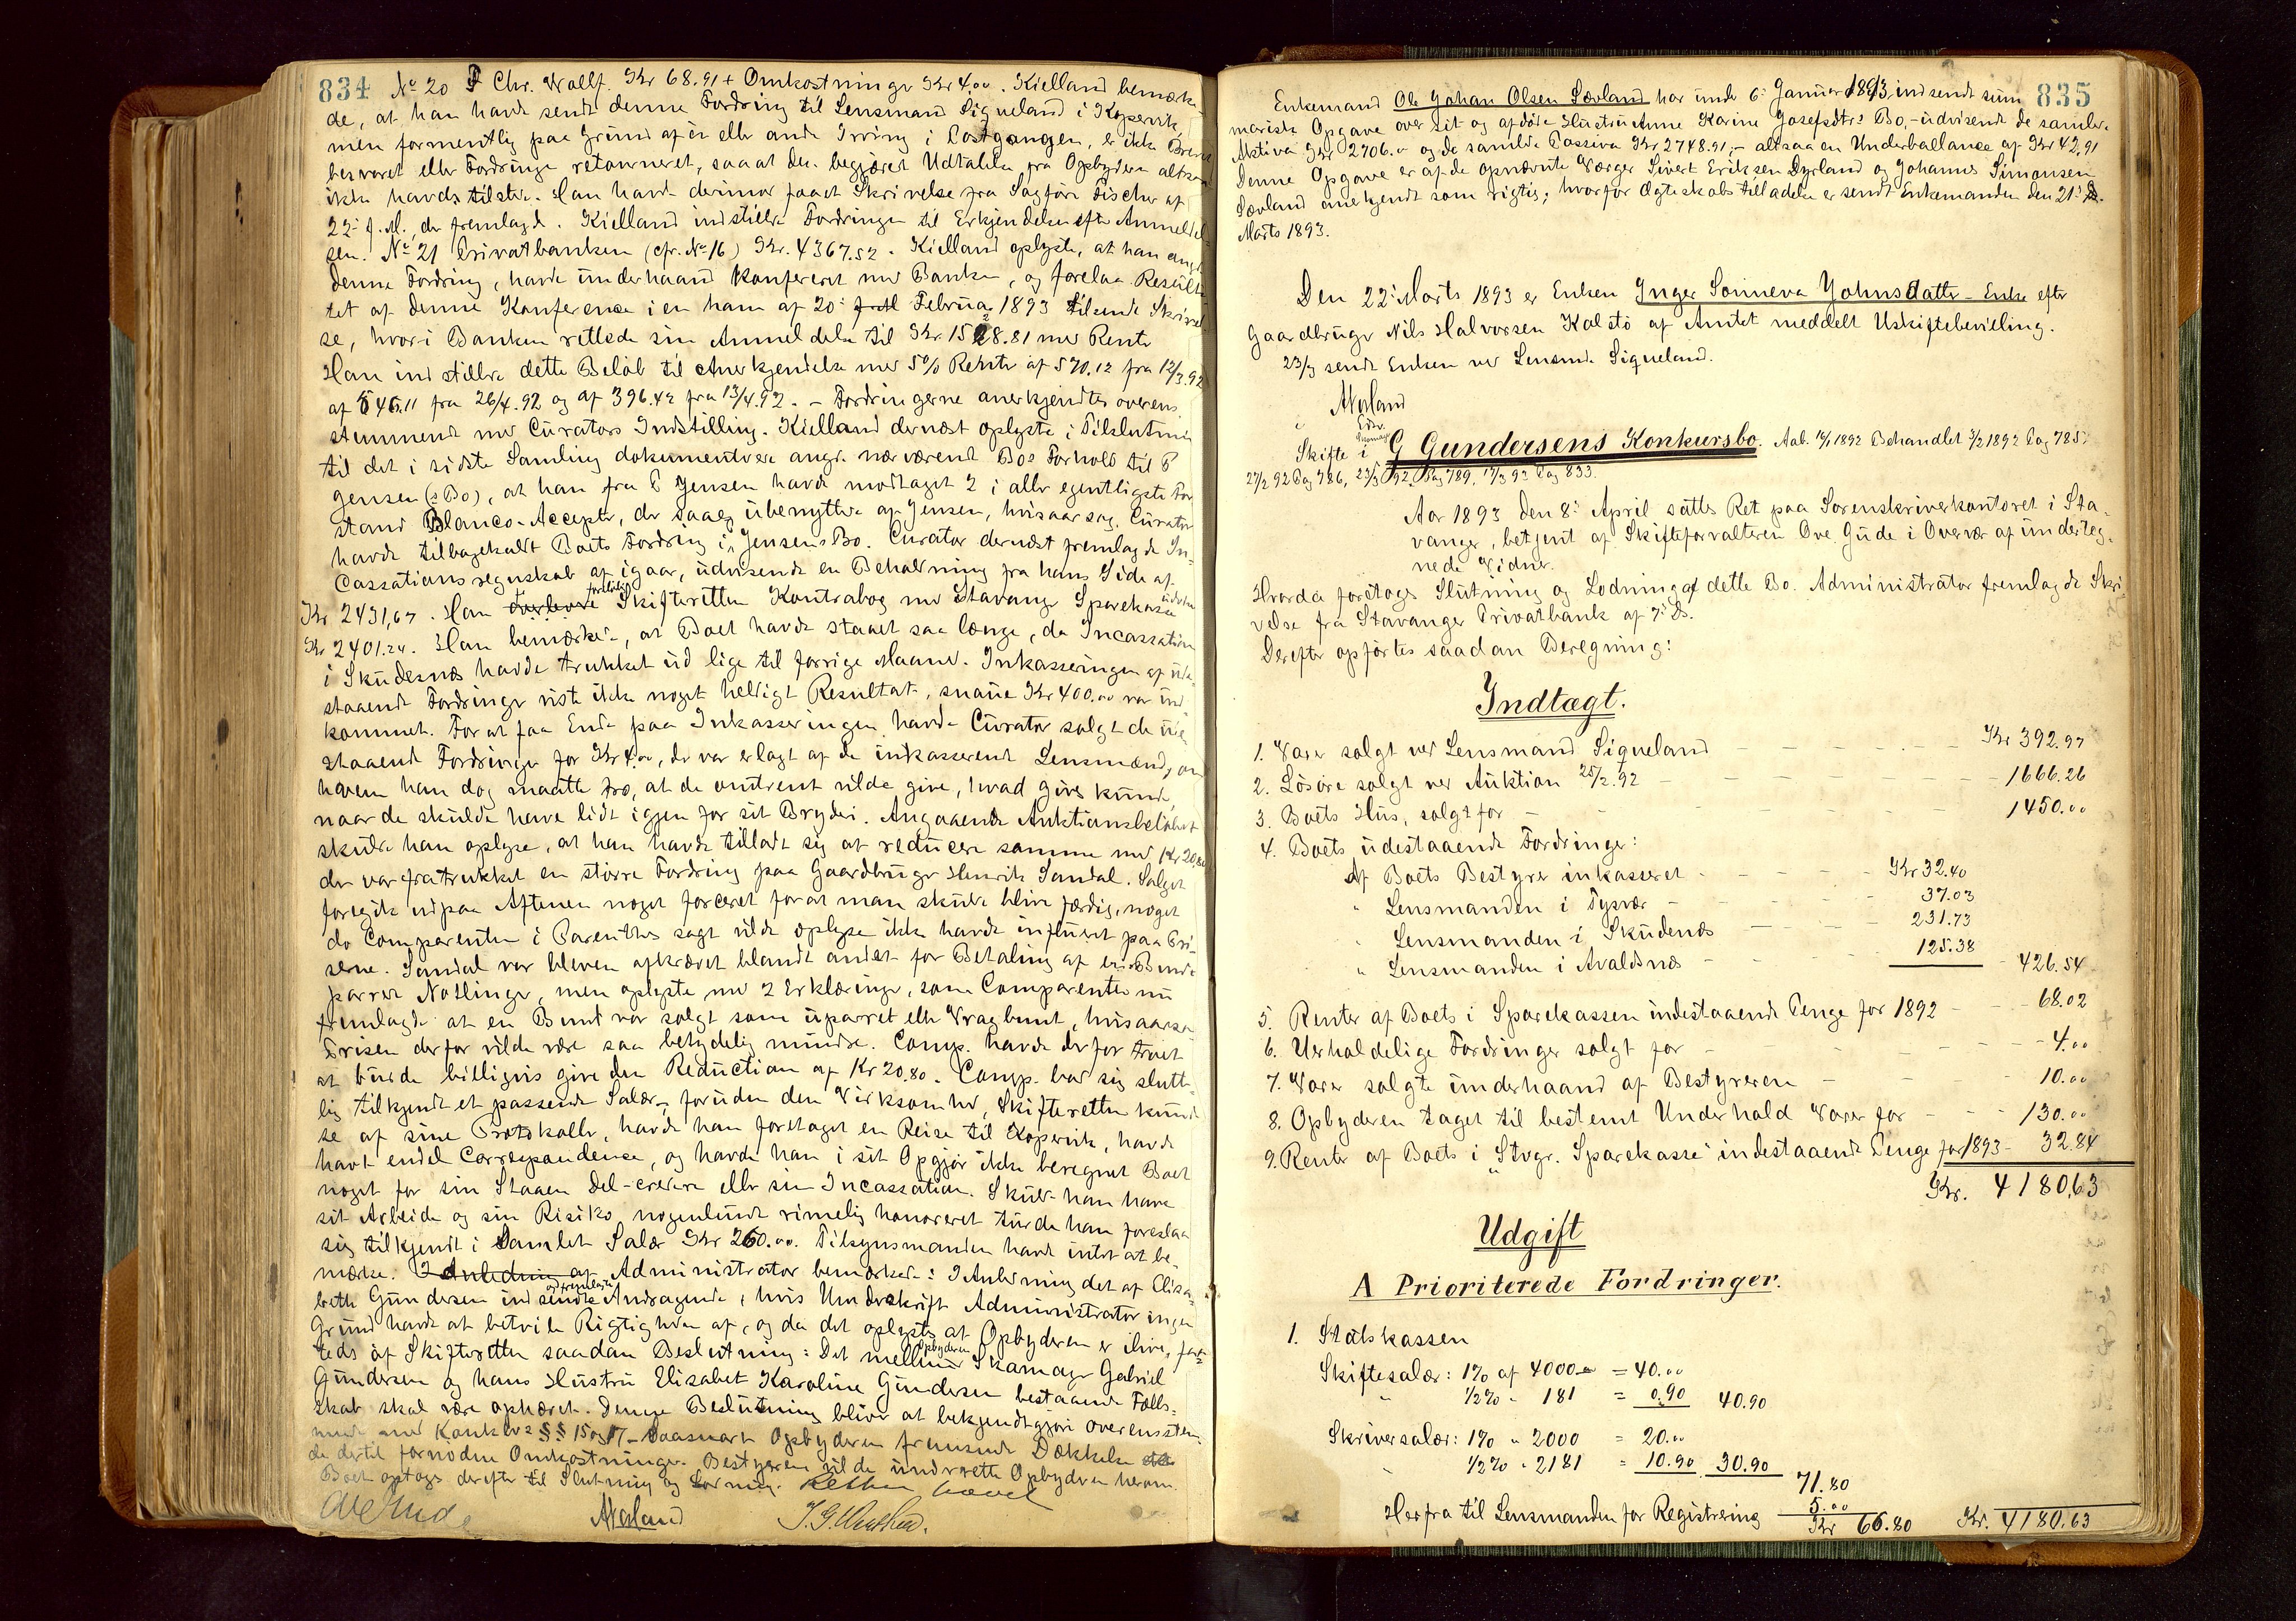 834
No 20 J Chr. Wallf. Kr 68.91 + Omkostninger Kr 4.00. Kielland bemærke-
de, at han havde sendt denne Fordring til Lensmand Signeland i Kopervik
men formentlig paa Grund af en eller anden Irring i Postgangen, er ikke Brevet
besvaret eller Fordringen retourneret, saaat den begjæret Udtalelse fra Opbyderen altsaa
ikke havdes tilstede. Han havde derimod faaet Skrivelse fra Sagfører Fischer af
22. f. M., der fremlagdes. Kielland indstillede Fordringen til Erkjendelse efter Anmeldel-
sen. No 21 Privatbanken (cfr. No 16) Kr. 4367.52. Kielland oplyste, at han angd
denne Fordring, havde underhaand konfereret med Banken, og forelaa Resulta-
tet af denne Konference i en ham af 20. Februar 1893 tilsendt Skrivel-
se, hvori Banken rettede sin Anmeldelse til Kr. 1528.81 med Renter
Han indstillede dette Beløb til Anerkjendelse med 5% Rente af 570.12 fra 12/3.92
af 546.11 fra 26/4.92 og af 396.42 fra 13/4.92. - Fordringerne anerkjendtes overens-
stemmende med Curators Indstilling. Kielland dernæst oplyste i Tilslutning
til det i sidste Samling dokumenterede angr. nærværende Bos Forhold til P
Jensen (s Bo), at han fra P Jensen havde modtaget 2 i aller egentligste For-
stand Blanco-Accepter, der saaes ubenyttede af Jensen, hvisaarsag Curator
havde tilbagekaldt Boets Fordring i Jensens Bo. Curator dernæst fremlagde In-
cassationsregnskab af igaar, udvisende en Beholdning fra hans Side af
Kr 2431,67. Han foreviste Skifteretten Kontrabog med Stavanger Sparekasse udvisende
Kr 2401.24. Han bemærkede, at Boet havde staaet saa længe, da Incassationen
i Skudesnes havde trukket ud lige til forrige Maaned. Inkasseringen af ude-
staaende Fordringer viste ikke noget heldigt Resultat, snaue Kr 400.00 var ind-
kommet. For at faa Ende paa Inkasseringen havde Curator solgt de ude-
staaende Fordringer for Kr 4.00, der var erlagt af de inkasserende Lensmænd, om
hvem han dog maatte tro, at de omtrent vilde give, hvad gives kunde,
naar de skulde have lidt igjen for sit Bryderi. Angaaende Auktionsbeløbet
skulde han oplyse, at han havde tilladt sig at reducere samme med Kr 20,80
der var fratrukket en større Fordring paa Gaardbruger Henrik Sandal. Salget
foregik udpaa Aftenen noget forceret forat man skulde blive færdig, noget
da Comparenten i Parenthes sagt vilde oplyse ikke havde influeret paa Pri-
serne. Sandal var bleven afkrævet blandt andet for Betaling af en Bundt
parrede Nøtlinger, men oplyste med 2 Erklæringer, som Comparenten nu
fremlagde at en Bundt var solgt som uparret eller Vragbunt, hvisaarsag
Prisen derfor vilde være saa betydelig mindre. Comp. havde derfor troet
at burde billigvis give den Reduction af Kr 20.80. Comp. bad sig slutte-
lig tilkjendt et passende Salær, foruden den Virksomhed, Skifteretten kunde
se af sine Protokoller, havde han foretaget en Reise til Kopervik, havde
havt endel Correspondence, og havde han i sit Opgjør ikke beregnet Boet
noget for sin Staaen del-credere eller sin Incassation. Skulde han have
sit Arbeide og sin Risiko nogenlunde rimelig honoreret turde han foreslaa
sig tilkjendt i Samlet Salær Kr 260.00. Tilsynsmanden havde intet at be-
mærke. I Anledning af Administrator bemærkede: I Anledning det af Elisa-
beth Gundersen indsendte og fremlagte Andragende, hvis Underskrift Administrator ingen
Grund havde at betvile Rigtigheden af, og da det oplystes at Opbyderen er ilive, fat-
tedes af Skifteretten saadan Beslutning: Det mellem Opbyderen Skomager Gabriel
Gundersen og hans Hustru Elisabet Karoline Gundersen bestaaende Fælls-
skab skal være ophævet. Denne Beslutning bliver at bekjendtgjøre overensstem-
mende med Konklvs §§ 15 og 17 - saasnart Opbyderen fremsende Dækkelse
de dertil fornødne Omkostninger. Bestyreren vilde underrette Opbyderen herom.
Boet optoges derefter til Slutning og Lodning. Retten hævet
Ove Gude
Aaland
835
Enkemand Ole Johan Olsen Sævland har under 6. Januar 1893 indsendt sum-
marisk Opgave over sit og afdøde Hustru Anne Karine Josefsdtrs Bo, - udvisende de samlede
Aktiva Kr 2706.00 og de samlede Passiva Kr 2748.91; - altsaa en Underballance af Kr 42,91
Denne Opgave er af de opnævnte Værger Sivert Eriksen Dyrland og Johannes Simonsen
Sævland anerkjendt som rigtig; hvorfor Ægteskabstilladelse er sendt Enkemanden den 21. ds.
Marts 1893.
Den 22. Marts 1893 er Enken Inger Sonneva Johnsdatter - Enke efter
Gaardbruger Nils Halvorsen Kalstø af Amtet meddelt Uskiftebevilling.
23/3 sendt Enken ved Lensmd. Signeland.
Aaland
Edsv.
Skifte i G Gundersens Konkursbo. Aab. 14/1 1892 Behandlet 3/2 1892 Pag 785,
27/2 92 Pag 786, 23/5 92, Pag 789, 17/3 93 Pag 833.
Aar 1893 den 8. April sattes Ret paa Sorenskriverkontoret i Sta-
vanger, betjent af Skifteforvalteren Ove Gude i Overvær af underteg-
nede Vidner.
Hvorda foretoges Slutning og Lodning af dette Bo. Administrator fremlagde Skri-
velse fra Stavanger Privatbank af 7. ds.
Derefter opførtes saadan Beregning:
Indtægt.
1. Varer solgt ved Lensmand Signeland - Kr 392.97
2. Løsøre solgt ved Auktion 25/2.92 - 1666.26
3. Boets Hus, solgt for - 1450.00
4. Boets udestaaende Fordringer:
Af Boets Bestyrer inkasseret - Kr 32.40
" Lensmanden i Tysvær - 37.03
" Lensmanden i Skudenæs - 231.73
" Lensmanden i Avaldsnæs - 125.38 - 426.54
5. Renter af Boets i Sparekassen indestaaende Penge for 1892 - 68.02
6. Uerholdelige Fordringer solgt for - 4.00
7. Varer solgte underhaand af Bestyreren - 10.00
8. Opbyderen taget til bestemt Underhold Varer for - 130.00
9. Renter af Boets i "Stvgr. Sparekasse" indestaaende Penge for 1893 - 32.84
Kr. 4180,63
Udgift
A Prioriterede Fordringer.
1. Statskassen
Skiftesalær: 1% af 4000 = 40.00
" 1/2% " 181 = 0.90 40.90
Skriversalær: 1% " 2000 = 20.00
" 1/2% " 2181 = 10.90 30.90
71.80
Herfra til Lensmanden for Registrering 5.00
Kr 66.80 Kr. 4180.63